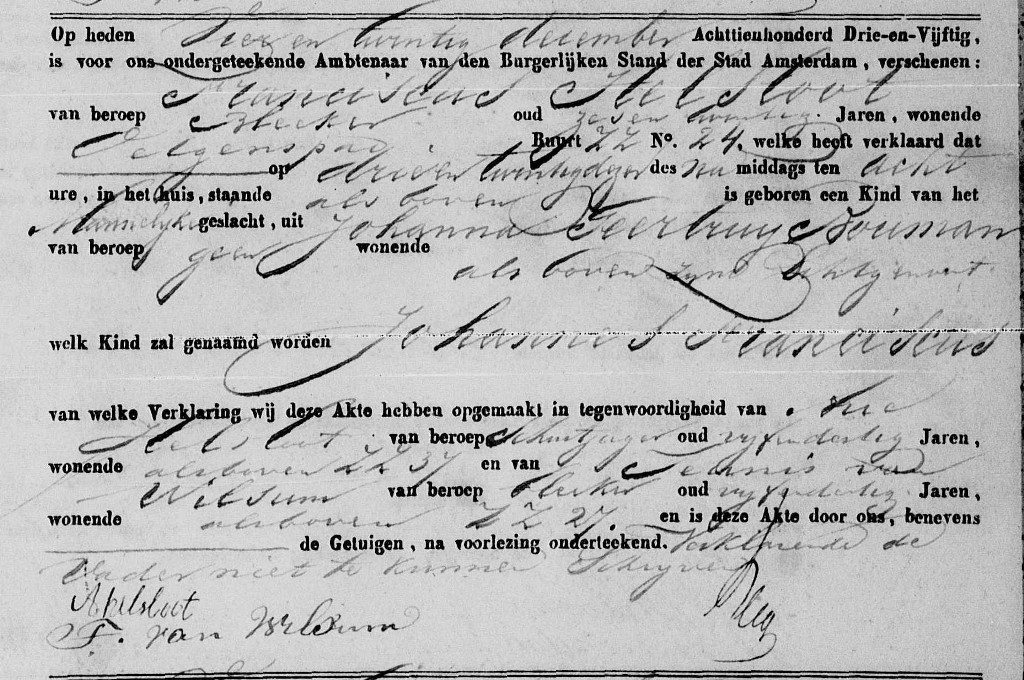 Op heden Vier en twintig december Achttienhonderd Drie-en-Vijftig,
is voor ons ondergeteekende Ambtenaar van den Burgerlijken Stand der Stad Amsterdam, verschenen:
Franciscus Helsloot
van beroep Bleeker oud zes en twintig Jaren, wonende
Buurt ZZ No. 24, welke heeft verklaard dat
op drie en twintig dezer des na middags ten acht
ure, in het huis, staande als boven is geboren een Kind van het
Mannelijke geslacht, uit Johanna Geertruy Bouman
van beroep geen wonende
als boven zyne Echtgenoot
welk Kind zal genaamd worden Johannes Franciscus
van welke Verklaring wij deze Akte hebben opgemaakt in tegenwoordigheid van Arie
Helsloot van beroep Schuitjager oud vyfendertig Jaren,
wonende als boven ZZ 37 en van Teunis van
Wilsum van beroep bleeker oud vyfendertig Jaren,
wonende als boven ZZ 27. en is deze Akte door ons, benevens
de Getuigen, na voorlezing onderteekend. Verklarende de
Vader niet te kunnen Schryven
AHelsloot
T. van Wilsum